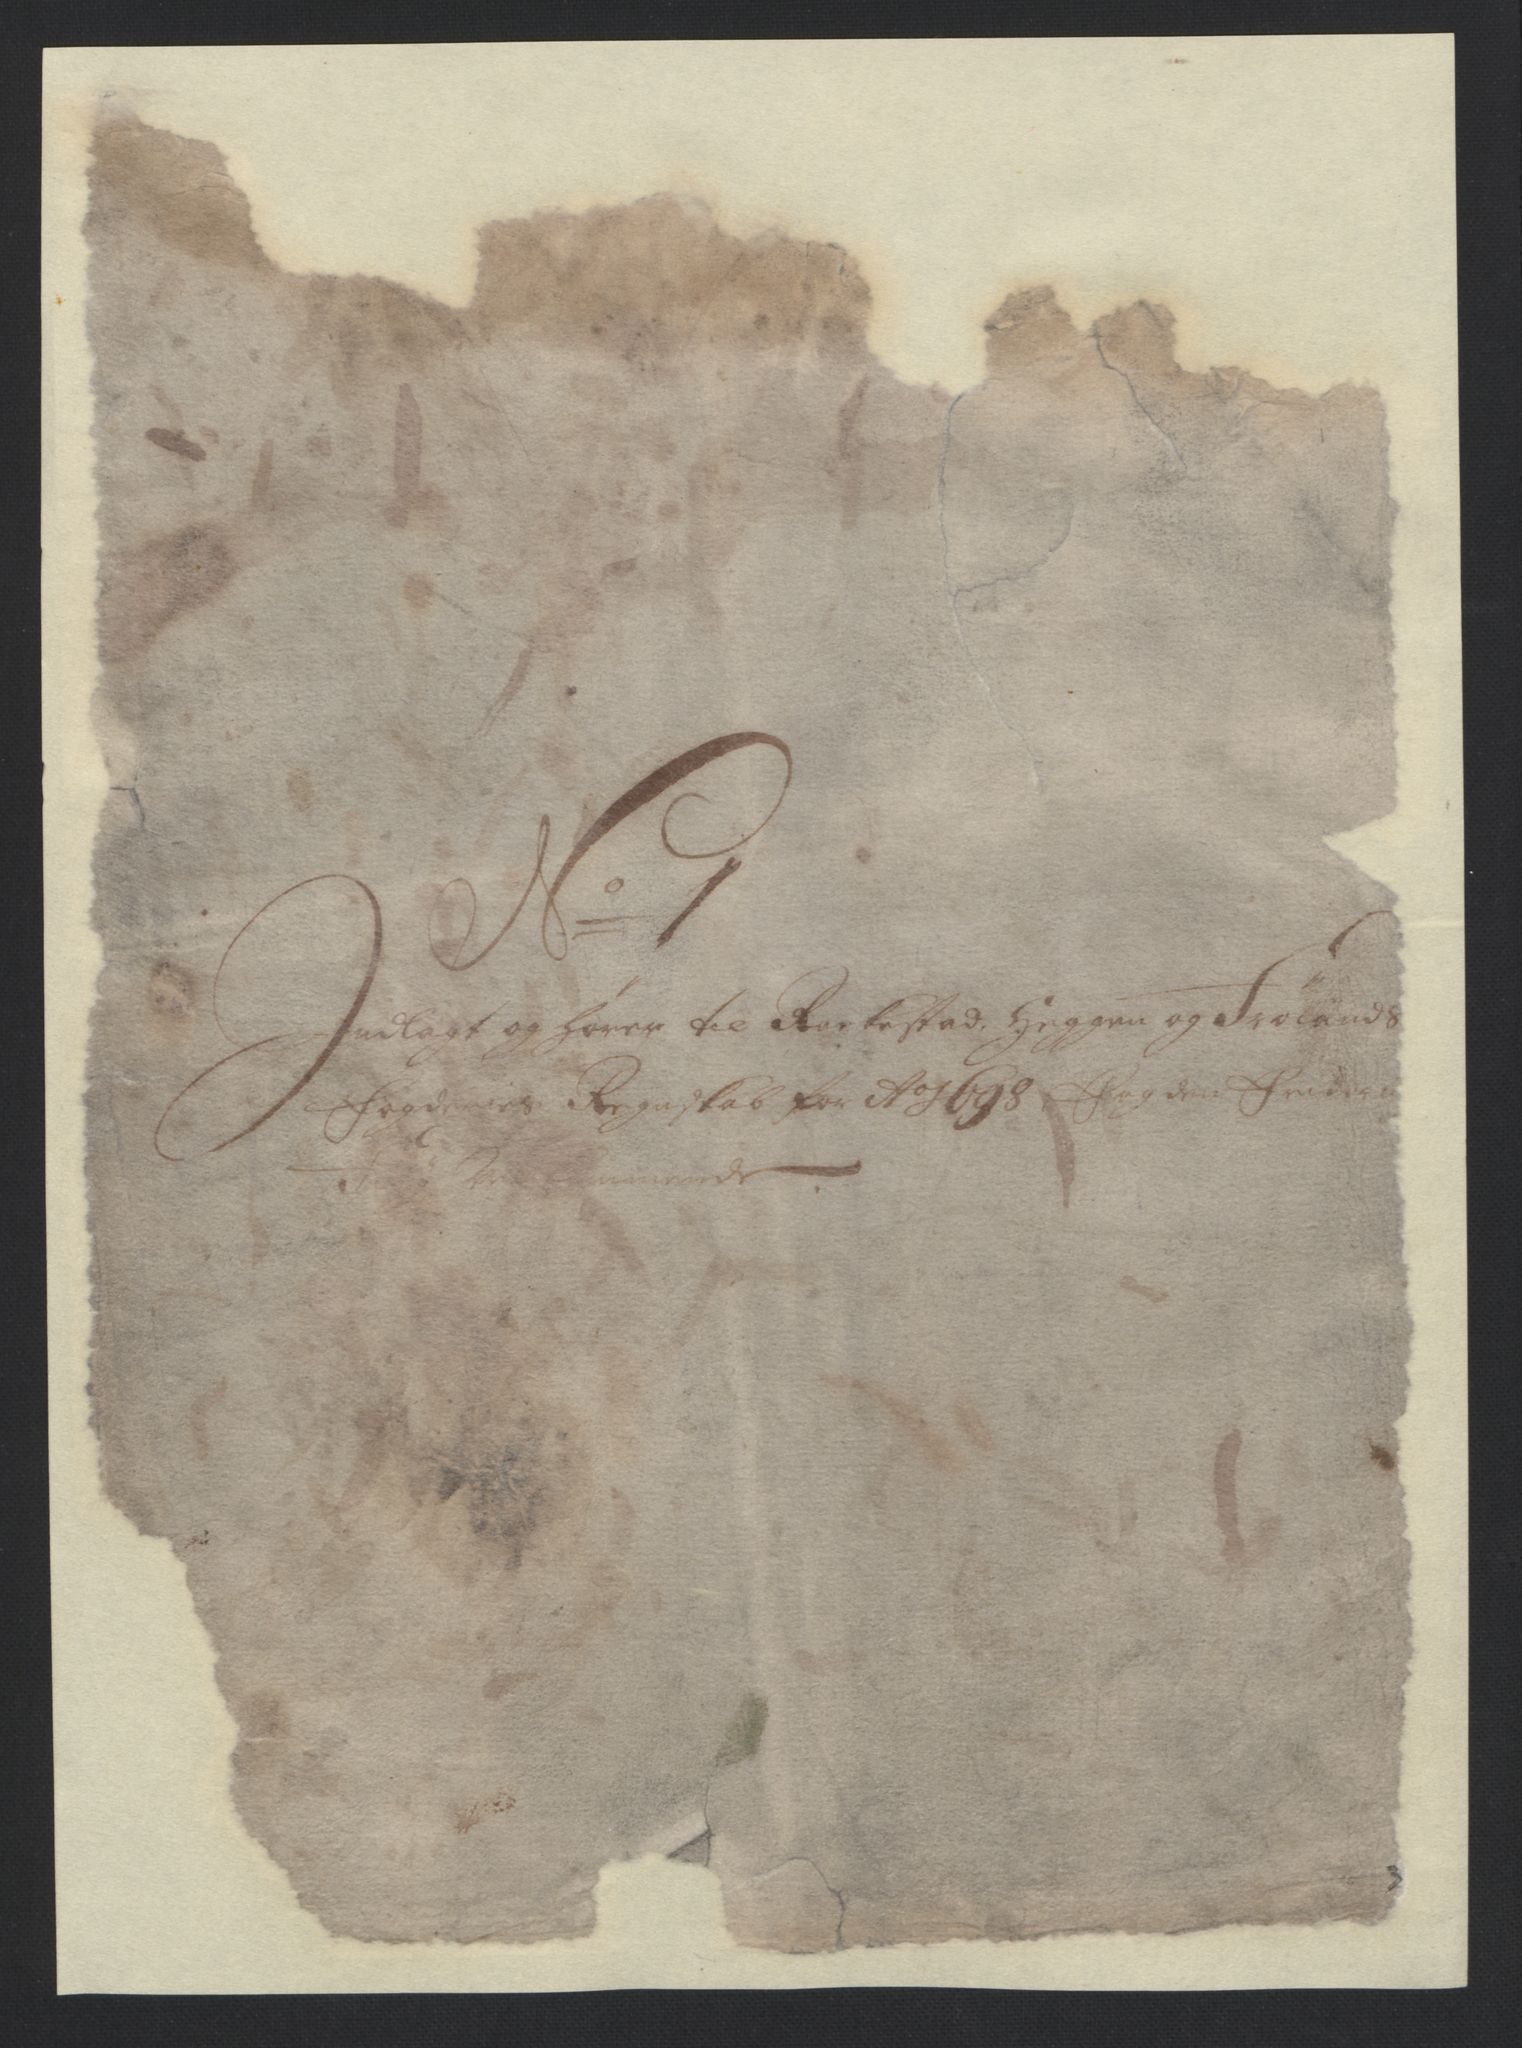 No 1
Indlagt og hører til Rackestad, Heggen og Frölands
Fogderies Regnskab for Ao 1698 Fogden
vedkommende
3